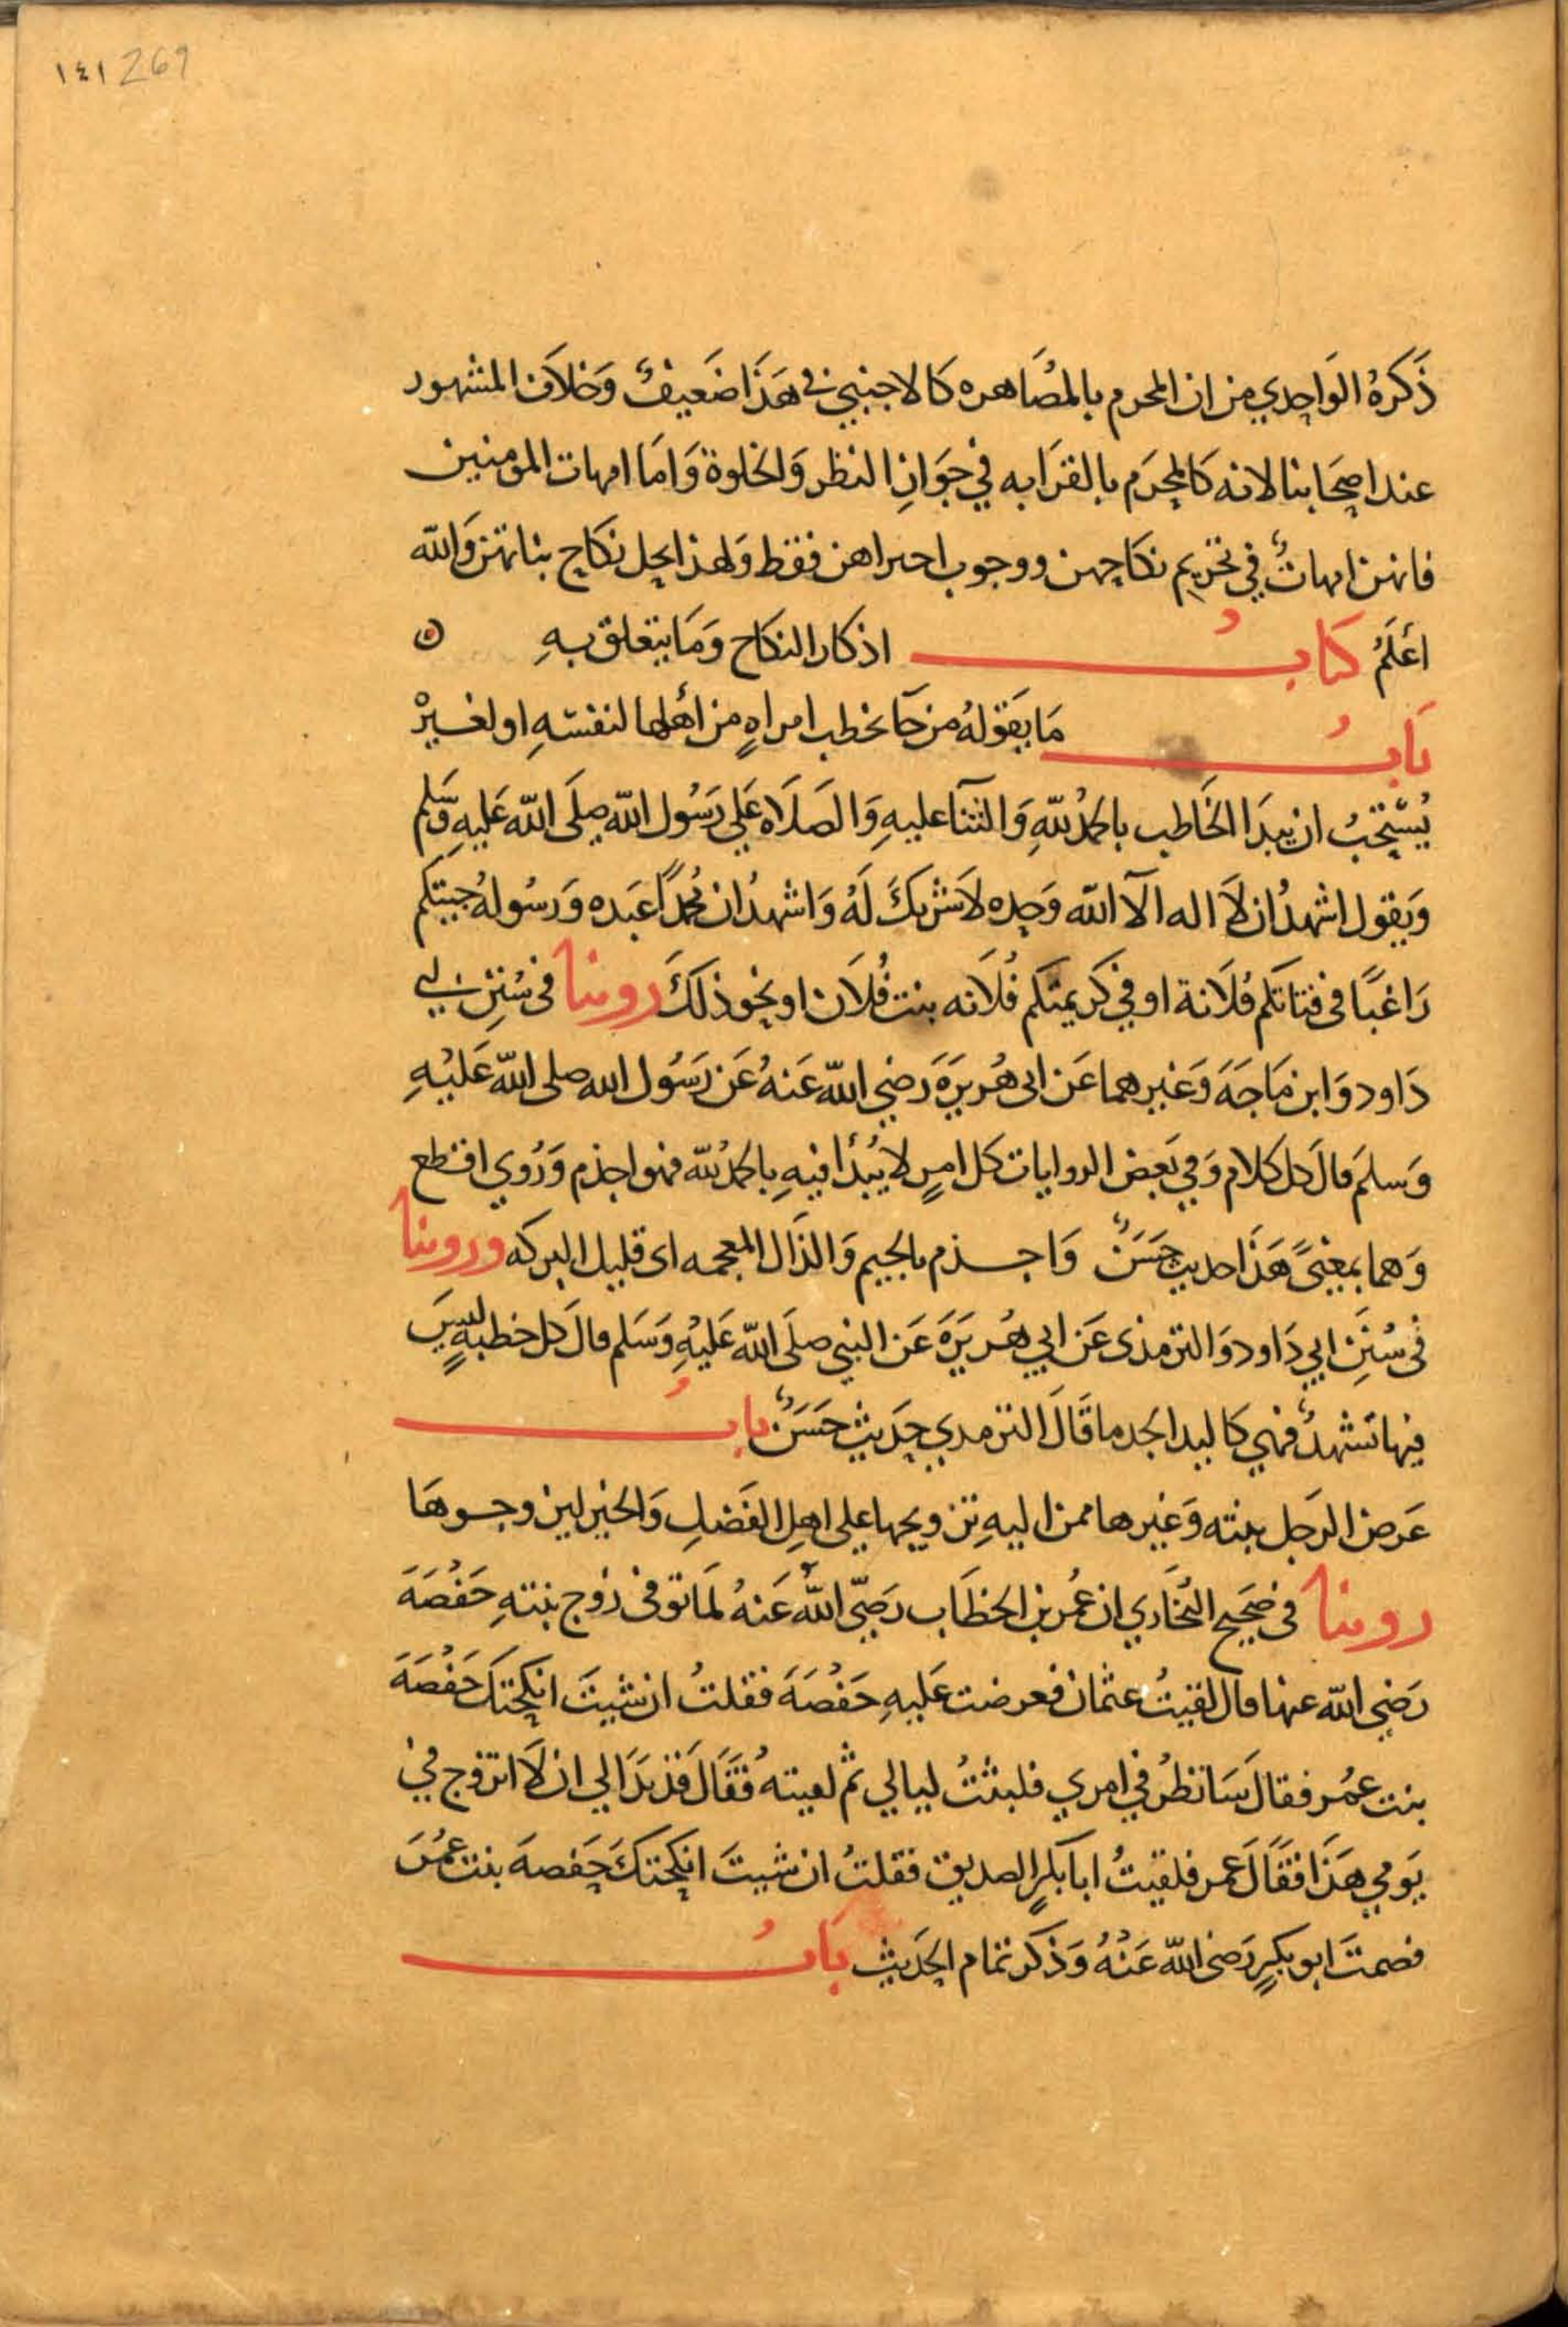 ١٤١ 269
ذَكَرَهُ الوَاحِدي من ان المحرم بالمصَاهره كَالاجنبي في هَذَا ضَعيفٌ وَخلاَف المشهور
عند اصحَابنا لانه كَالمحرَم بالقرَابه في جَوَازِ النظر وَالخلوة وَامَا امهات المومنين
فانهن امهاتٌ في تحريم نكَاحهن ووجوب احترامهن فقط وَلهذا يحل نكَاح بناتهن وَالله
اعَلَمُ كتَابُ اذكار النكَاح وَمَا يتعلق بهِ
بَابُ مَا يَقولهُ من جَآ يخطب امراهٍ من أهلها لنفسَهِ او لغيرْ
يُسْتَحَبُ ان يبدَا الخَاطب بالحمدُ للّهِ وَالثنَآ عليهِ وَالصَلاَه عَلي رَسُول الله صلَى الله عَليهِ وَسَلم
وَيقول اشهدُ ان لاَ اله الاَ الله وَحده لاَ شريكَ لَهُ وَاشهدُ ان محمدًا عَبَده وَرسُولهُ جيتكم
رَاغبًا فى فتاتكَم فُلاَنة او في كَريمتكَم فُلاَنه بنت فُلاَن او نحو ذلكَ روينا فى سُنَنِ ابي
دَاود وَابن مَاجَهَ وَغيرهما عَن ابى هُريرَهَ رَضي الله عَنهُ عَن رَسَول الله صلى الله عَليْهِ
وَسلمَ قالَ كل كلام وَفي بَعض الروايات كل امرٍ لا يُبْدأ فيهِ بالحمدُ للّه فهو اجذم وَرُوي اقطع
وَهما بمعنىً هَذَا حديث حسَنٌ وَاجذم بالجيم وَالذَال المعجمه اى قليل البركه وروينا
فى سُنَنِ ابي دَاود وَالترمذى عَن ابي هُريَرَهَ عَن النبي صلَى الله عَليْهِ وَسَلم قالَ كل خطبهٍ ليسَ
فيها تَشهدٌ فهي كَاليد الجدما قَالَ الترمدي حَديث حَسَنٌ بابُ
عَرض الرجل بنته وَغيرها ممن اليهِ تزويجها على اهلِ الفَضلِ وَالخير ليتزوجوهَا
روينا فى صَحَيح البُخَاري ان عُمر بن الخطَاب رَضِيَ اللهُ عَنهُ لَمَا توفى زَوج بنتهِ حَفْصَهَ
رَضي الله عنها قال لقيتُ عثمان فعرضت عَليهِ حَفْصَهَ فقلتُ ان شيتَ انكحَتكَ حَفْصَهَ
بنت عمُر فقال سَانظرُ في امري فلبثتُ ليالي ثم لقيته فقَالَ قَذ بَدَا لي ان لاَ اتزوج في
يَومي هَذَا فقَالَ عمر فلقيتُ ابا بَكرٍ الصديق فقلتُ ان شيتَ انكحتكَ حَفصهَ بنت عمُرَ
فصمتَ ابو بكرٍ رَضى الله عَنْهُ وَذكَر تمام الحَديث بَابُ